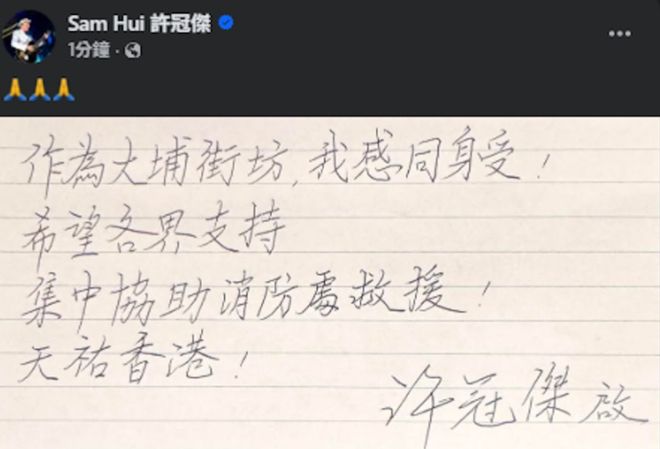 Sam Hui 許冠傑
1分鐘 ·
作為大埔街坊,我感同身受!
希望各界支持
集中協助消防處救援!
天祐香港!
許冠傑 啟